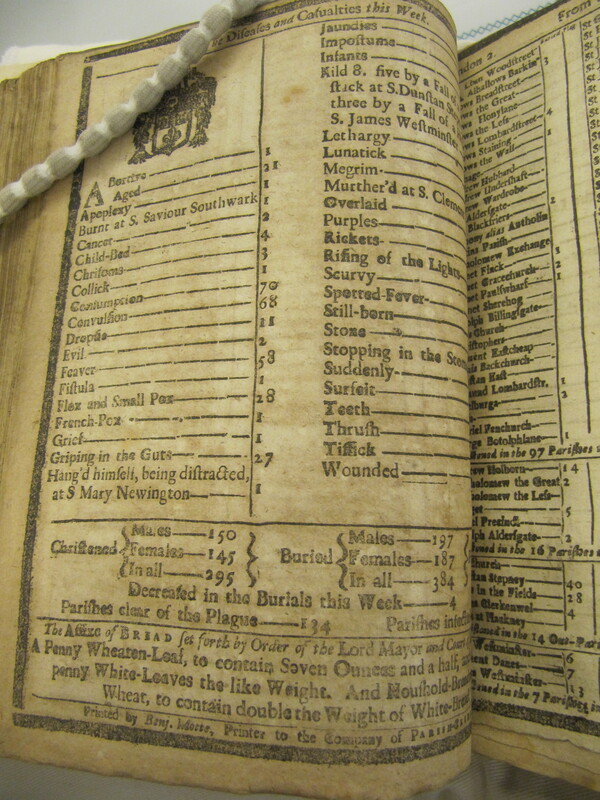 Diseases and Casualties this Week.
Abortive 1
Aged 21
Apoplexy 1
Burnt at S. Saviour Southwark 1
Cancer 2
Child-Bed 4
Chrisoms 3
Collick 1
Consumption 70
Convulsion 68
Dropsie 11
Evil 2
Feaver 58
Fistula 1
Flox and Small Pox 28
French-Pox 1
Grief 1
Griping in the Guts 27
Hang'd himself, being distracted,
at S Mary Newington 1
Jaundies
Impostume
Infants
Kild 8. five by a Fall of
stick at S. Dunstan
three by a Fall of
S. James Westminster
Lethargy
Lunatick
Megrim
Murther'd at S. Clement
Overlaid
Purples
Rickets
Rising of the Lights
Scurvy
Spotted-Feaver
Still-born
Stone
Stopping in the Stom
Suddenly
Surfeit
Teeth
Thrush
Tissick
Wounded
Christened Males 150 Females 145 In all 295
Buried Males 197 Females 187 In all 384
Decreased in the Burials this Week 4
Parishes clear of the Plague 134 Parishes infec
The Assize of BREAD set forth by Order of the Lord Mayor and Court
A Penny Wheaten-Loaf, to contain Seven Ounces and a half,
penny White-Loaves the like Weight. And Houshold
Wheat, to contain double the Weight of White
Printed by Benj. Motte, Printer to the Company of PARISH
From
Woodstreet
Breadstreet
the Great
Honylane
the Less
Lombardstreet 4
Staining
the Wall
Hubbard
Undershaft
Wardrobe
Aldersgate
Blackfriers
alias Antholin
Parish
Exchange
Finck
Gracechurch
Sherehog
Billingsgate
Church
Eastcheap
Backchurch
Lombardstr.
Fenchurch
Botolphlane 1
in the 97 Parishes
Holborn 14
the Great 2
the Less
Precinct
Aldersgate 2
in the 16 Parishes
Stepney 40
in the Fields 28
Clerkenwel 4
at Hackney 4
in the 14 Out-Par
Westminster 6
Danes 7
Westminster 13
in the 7 Parishes